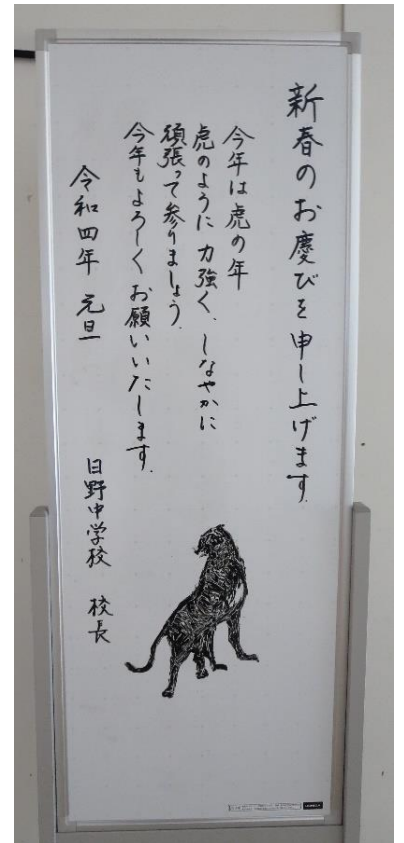 新春のお慶びを申し上げます
今年は虎の年
虎のように力強く、しなやかに
頑張って参りましょう。
今年もよろしくお願いいたします。
令和四年 元旦
日野中学校 校長